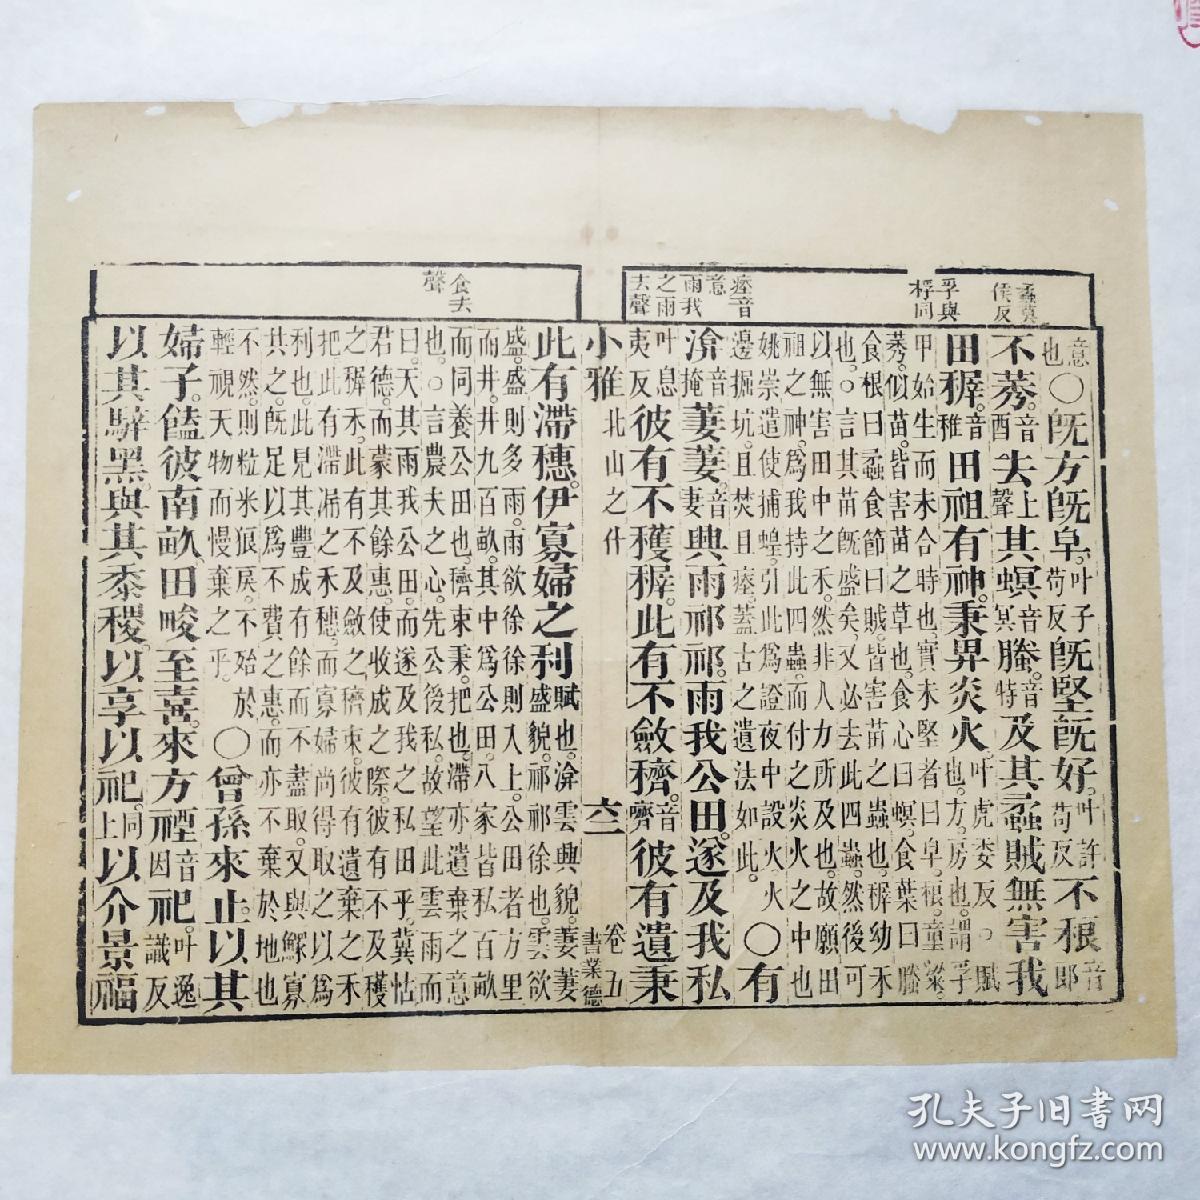 螽莫
侯反
乎與
桴同
瘞音
意
雨我
之雨
去聲
意也○既方既皁叶子苟反既堅既好叶許苟反不稂音郎
不莠音酉去上聲其螟音冥螣音特及其蟊賊無害我
田穉音稚田祖有神秉畀炎火叶虎委反○賦也方房也謂孚
甲始生而未合時也實未堅者曰皁稂童粱
莠似苗皆害苗之草也食心曰螟食葉曰螣
食根曰蟊食節曰賊皆害苗之蟲也穉幼禾
也○言其苗既盛矣又必去此四蟲然後可
以無害田中之禾然非人力所及也故願田
祖之神爲我持此四蟲而付之炎火之中也
姚崇遣使捕蝗引此爲證夜中設火火
邊掘坑且焚且瘞蓋古之遺法如此○有
渰音掩萋萋音妻興雨祁祁雨我公田遂及我私
叶息夷反彼有不穫穉此有不斂穧音嚌彼有遺秉
小雅 北山之什 六二 卷五 書業德
食去
聲
此有滯穗伊寡婦之利賦也渰雲興貌萋萋
盛貌祁祁徐也雲欲
盛盛則多雨雨欲徐徐則入土公田者方里
而井井九百畝其中爲公田八家皆私百畝
而同養公田也穧束秉把也滯亦遺棄之意
也○言農夫之心先公後私故望此雲雨而
曰天其雨我公田而遂及我之私田乎冀怙
君德而蒙其餘惠使收成之際彼有不及穫
之穉禾此有不及斂之穧束彼有遺棄之禾
把此有滯漏之禾穗而寡婦尚得取之以爲
利也此見其豐成有餘而不盡取又與鰥寡
共之既足以爲不費之惠而亦不棄於地也
不然則粒米狼戾不殆於
輕視天物而慢棄之乎○曾孫來止以其
婦子饁彼南畝田畯至喜來方禋音因祀叶逸識反
以其騂黑與其黍稷以享以祀同上以介景福
孔夫子旧书网
www.kongfz.com